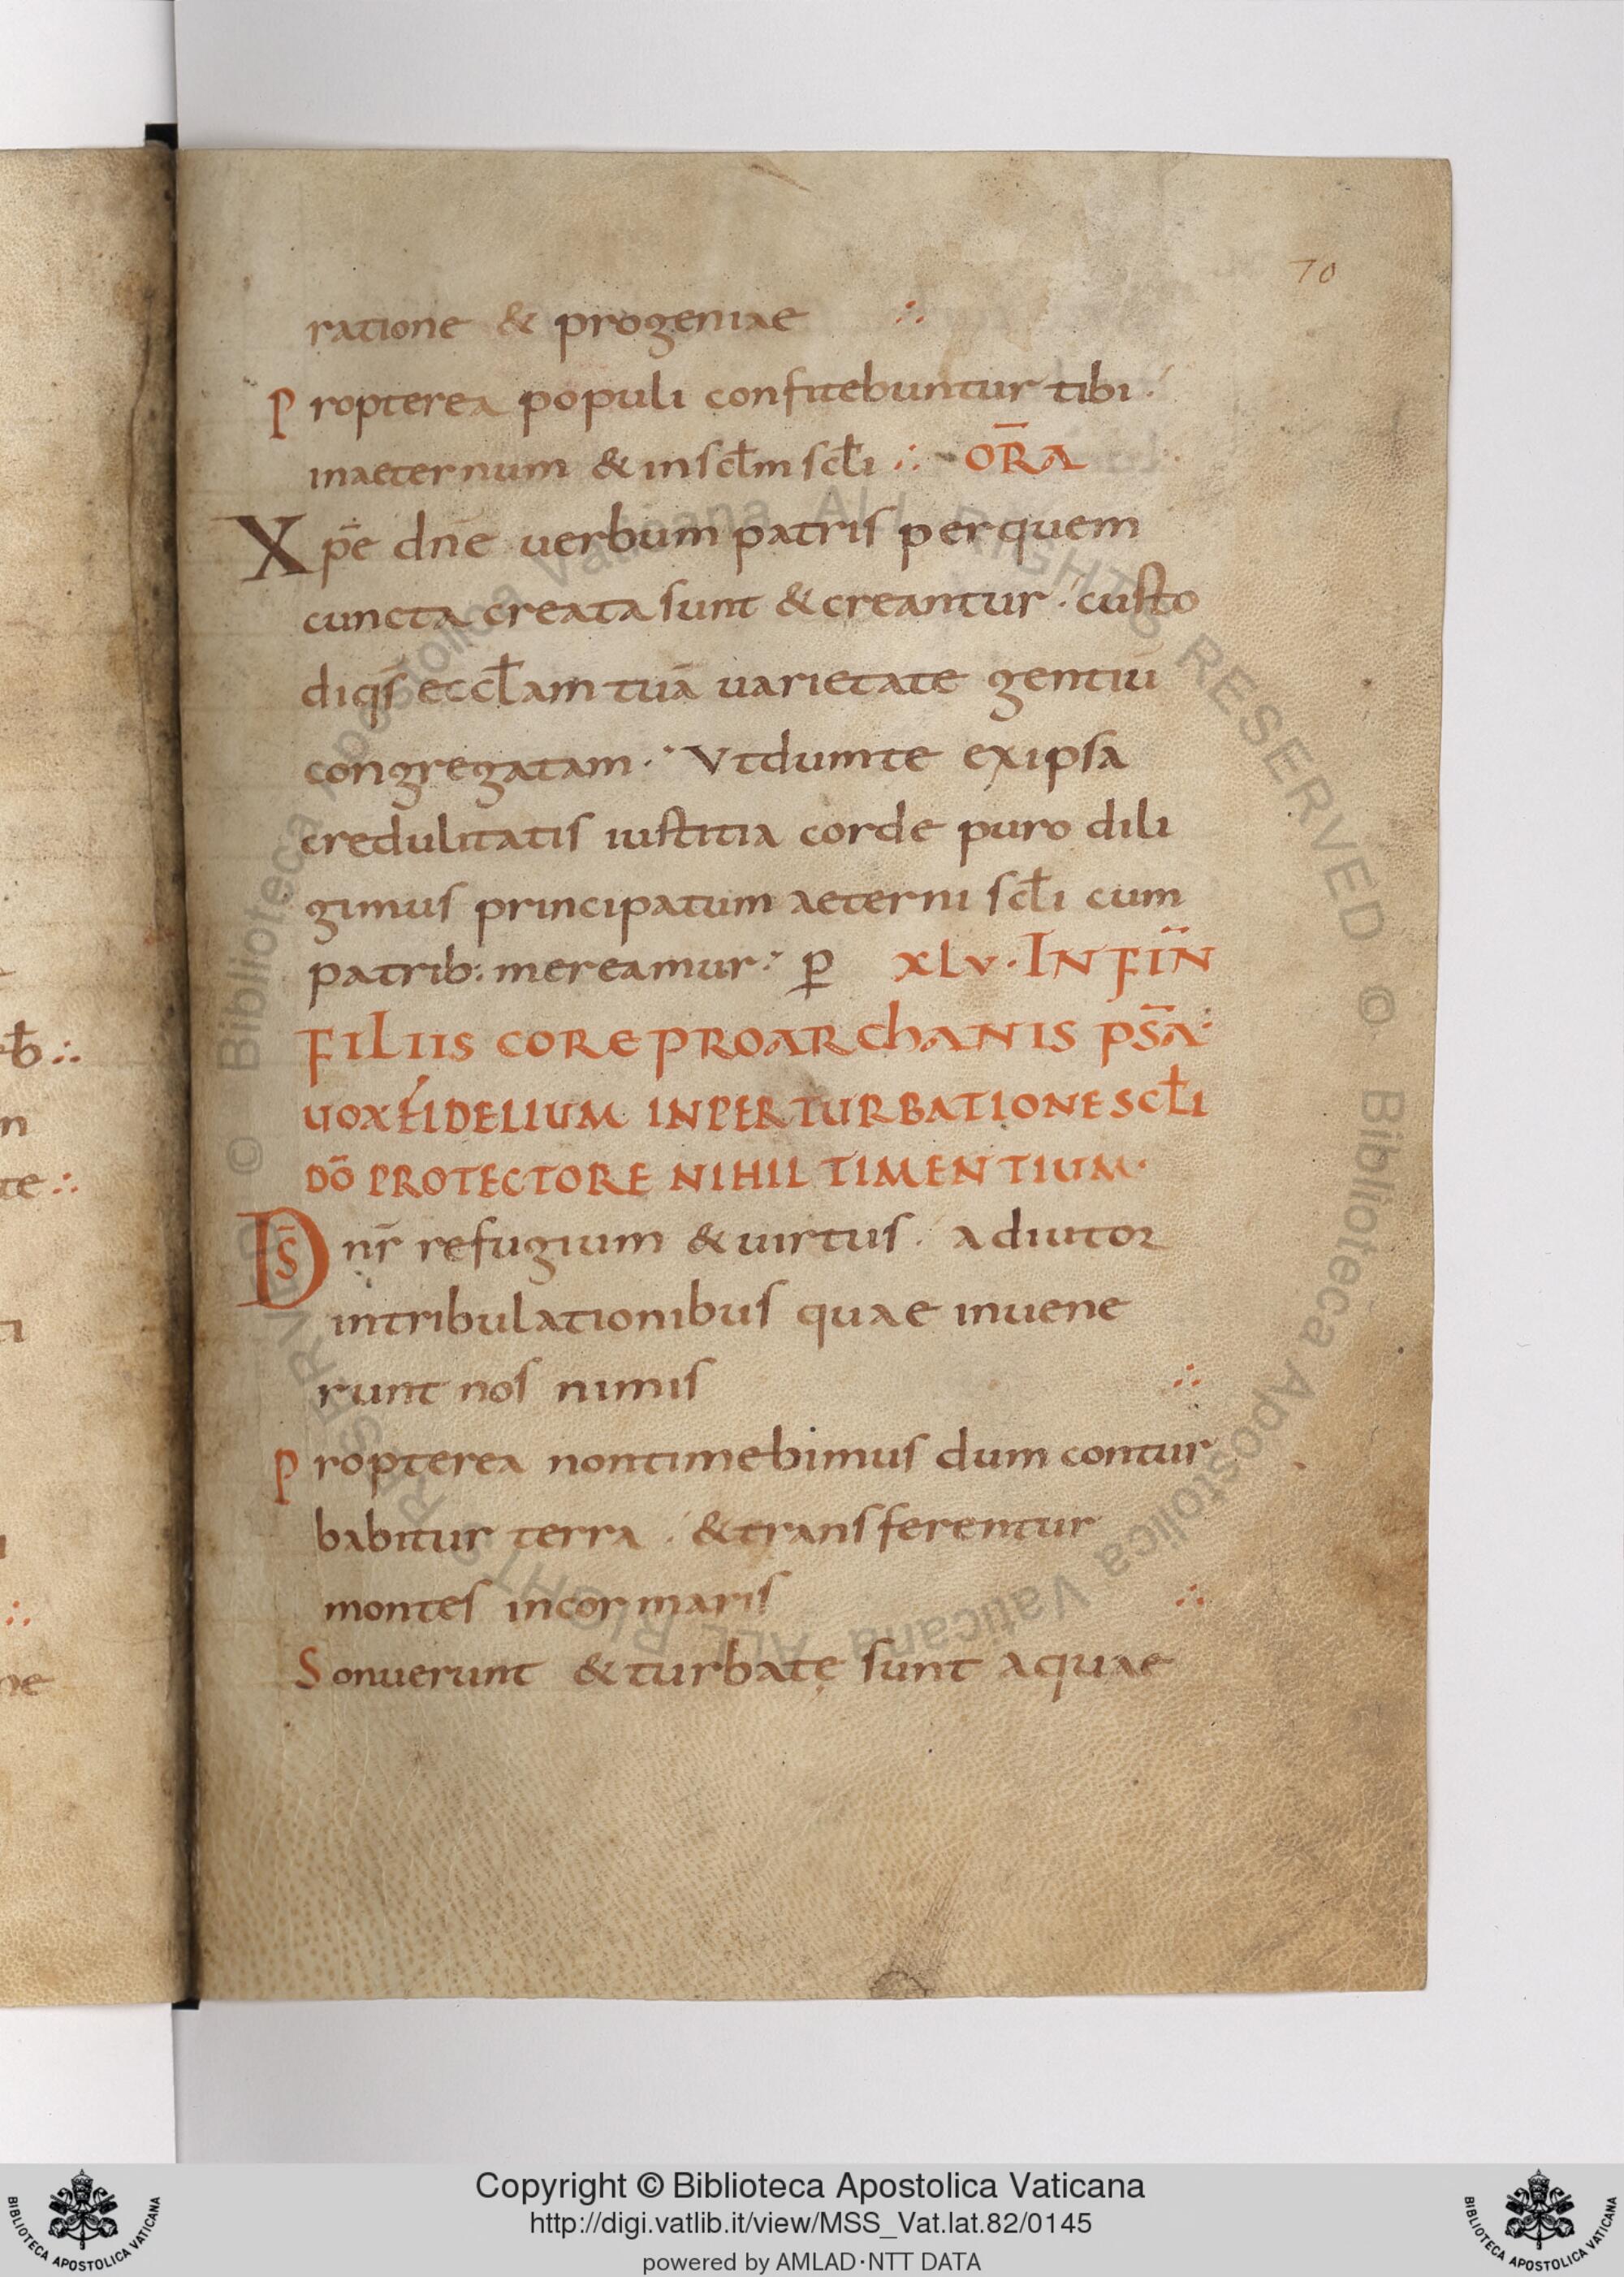 70
ratione & progeniae ∴
Propterea populi confitebuntur tibi ·
inaeternum & inscłm scłi ∴ OR̄A
Xpe̅ dn̅e uerbum patris perquem
cuncta creata sunt & creantur · custo
diqs̅ eccłam tuā uarietate gentiū
congregatam · Vtdumte exipsa
credulitatis iustitia corde puro dili
gimus principatum aeterni scłi cum
patrib: mereamur : ꝑ XLV · IN FIN̄
FILIIS CORE PROARCHANIS PSĀ
UOX FIDELIUM INPERTURBATIONE SCŁI
DŌ PROTECTORE NIHIL TIMENTIUM ·
DS̄ nr̅ refugium & uirtus · adiutor
intribulationibus quae inuene
runt nos nimis ∴
Propterea nontimebimus dum contur
babitur terra · & transferentur
montes incor maris ∴
Sonuerunt & turbatę sunt aquae
Copyright © Biblioteca Apostolica Vaticana
http://digi.vatlib.it/view/MSS_Vat.lat.82/0145
powered by AMLAD·NTT DATA